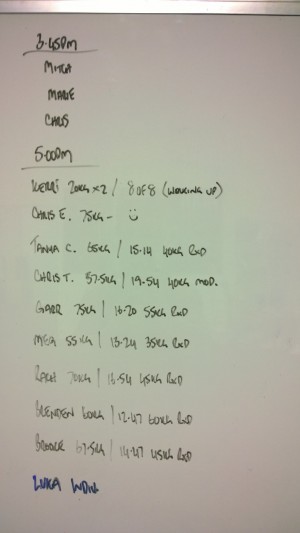 3.45PM
MITCH
MARIE
CHRIS
5.00PM
KERRI 20KG x2 / 8 OF 8 (WORKING UP)
CHRIS E. 75KG - ☺
TANHA C. 65KG / 15.14 40KG RXD
CHRIS T. 57.5KG / 19.54 40KG MOD.
GARR 75KG / 16.20 55KG RXD
MEG 55KG / 13.24 35KG RXD
70KG / 45KG RXD
BRENDEN 60KG / 12.47 60KG RXD
BROOKE 67.5KG / 14.47 45KG RXD
LUKA